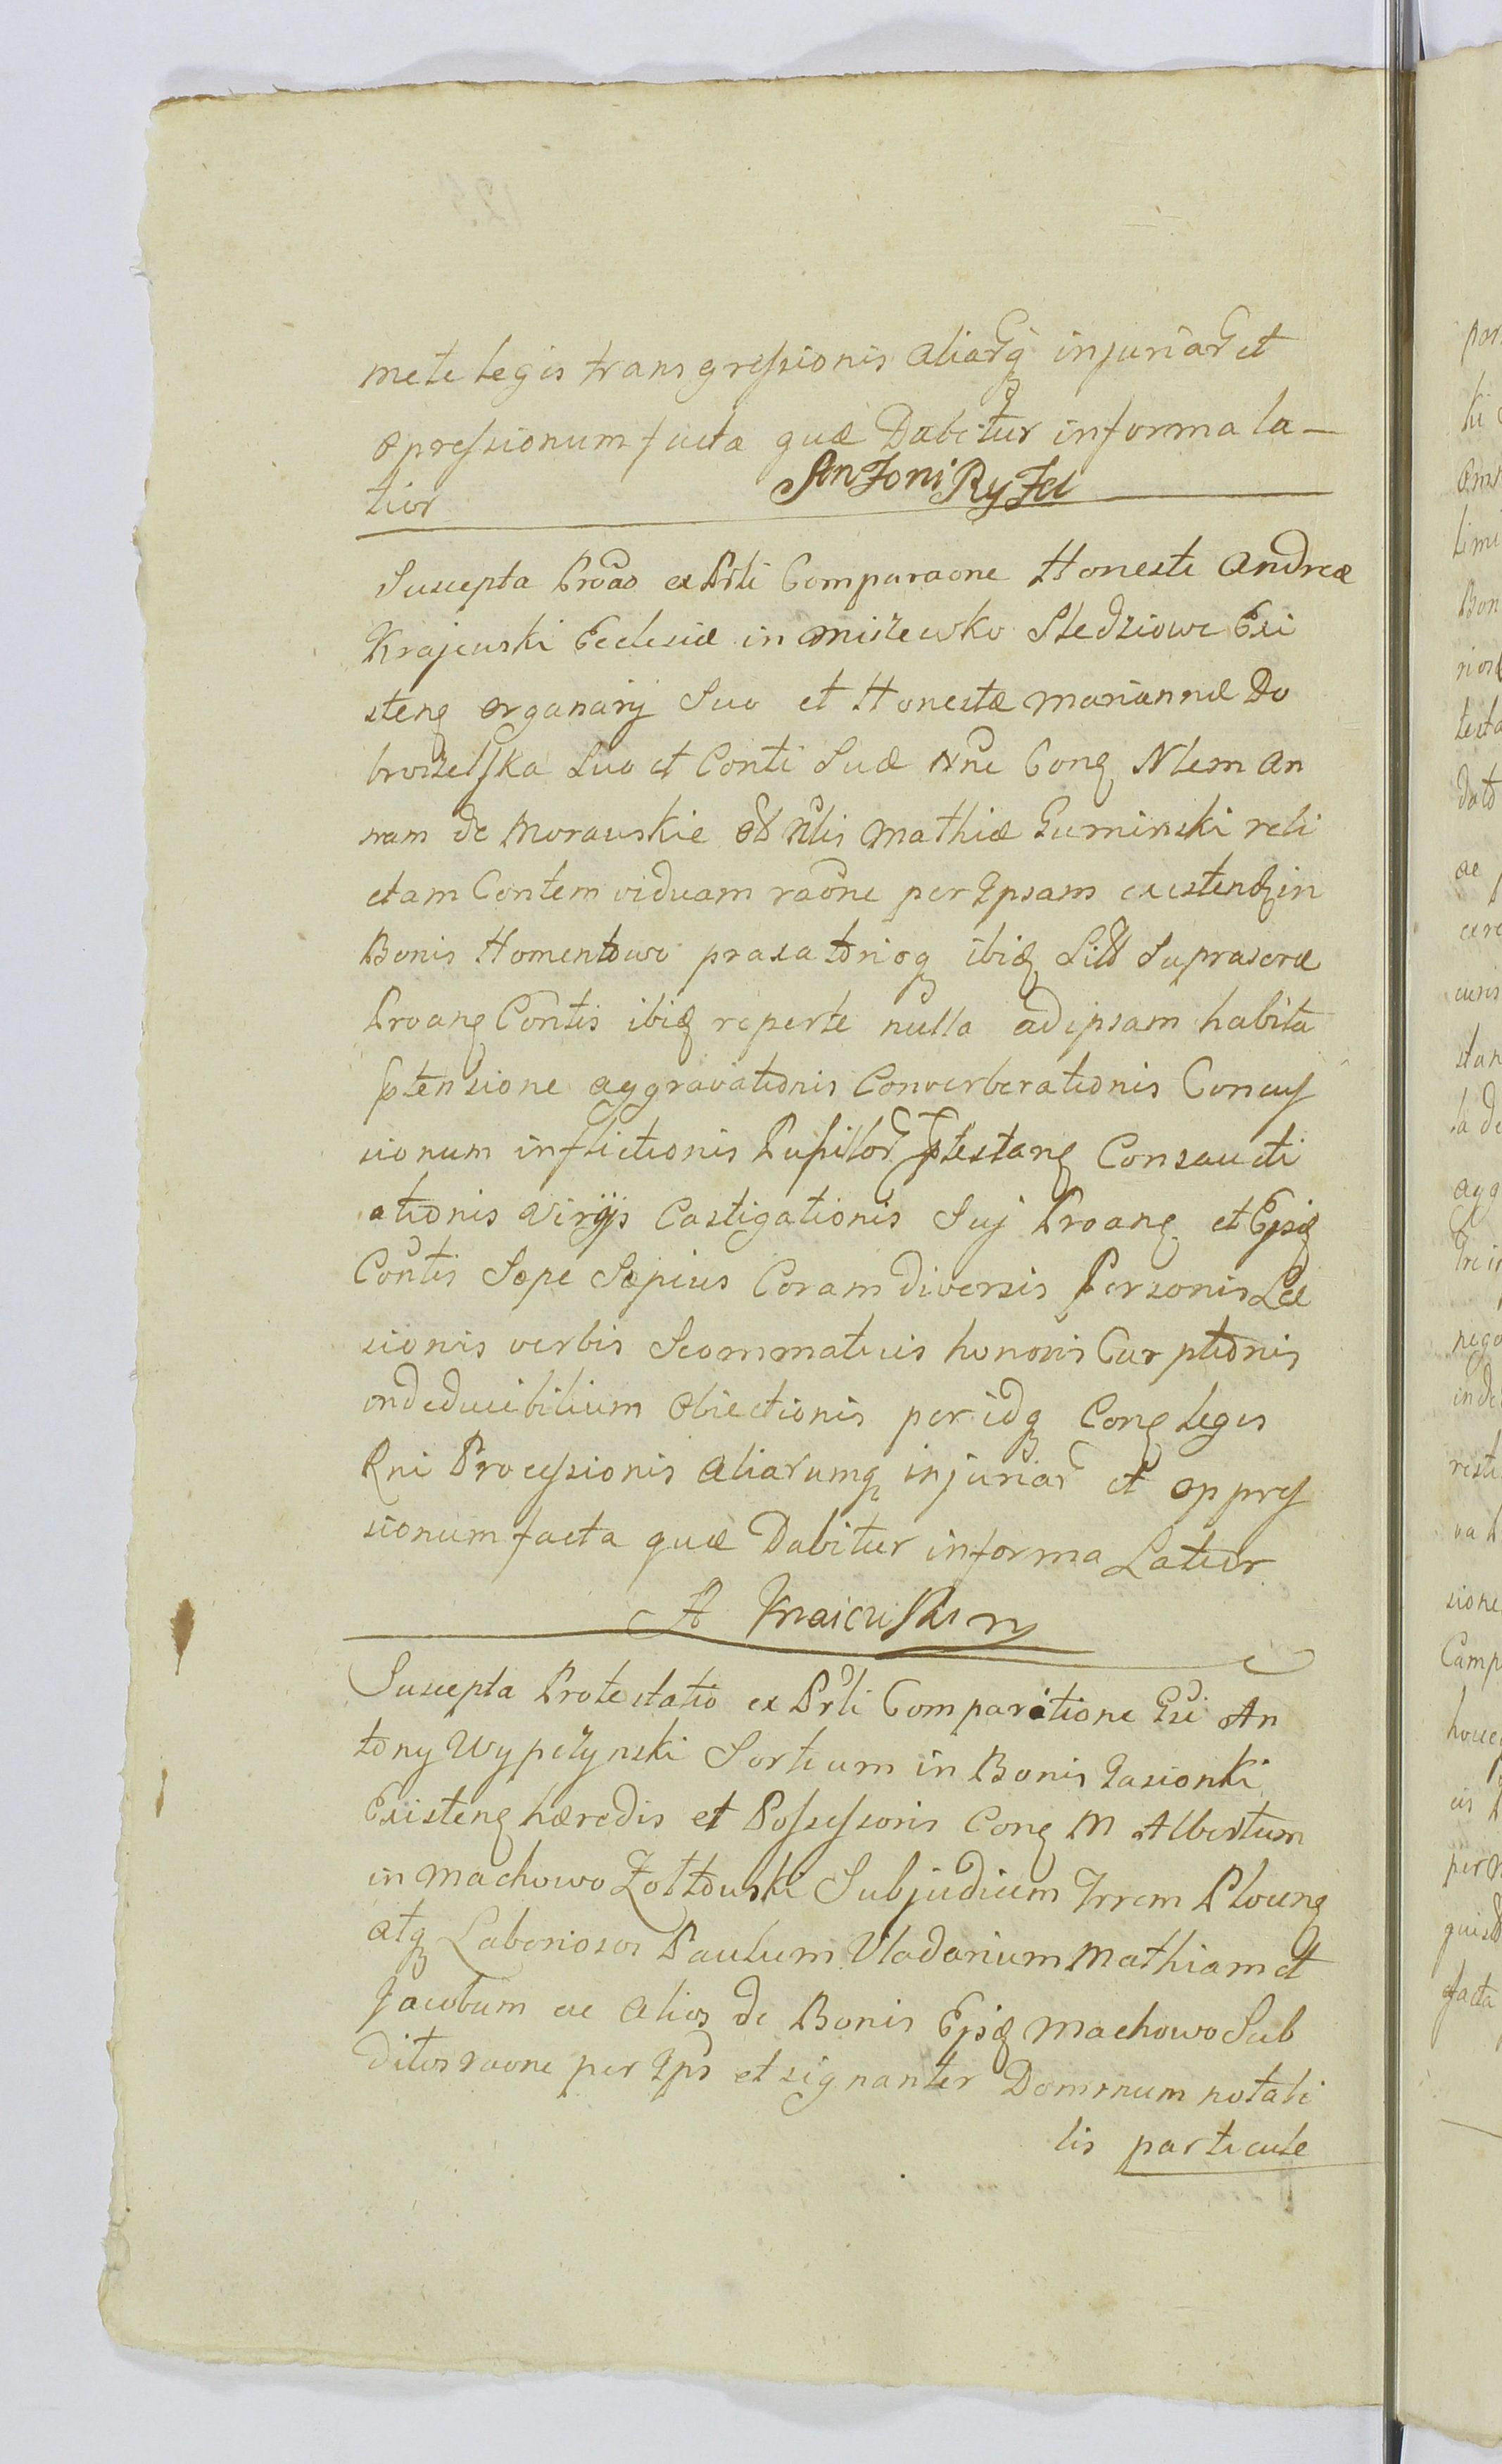 mete legis transgressionis aliarq injuriar et
opressionum facta quæ Dabitur in forma la-
tior
Antoni Rytel
Suscepta Proao ex Prli Comparaone Honesti Andreæ
Krajewski Ecclesiæ in Miszewko Stedziowe Exi
stenq organarij Suo et Honestæ Mariannæ Do
browelska Suo et Conti Suæ nne Conq Nlem An
nam de Morawskie olb Nlis Mathiæ Guminski reli
ctam Contem viduam raone per Ipsam existenq in
Bonis Homentowo praxatorioq ibiq Suprascræ
Proanq Contis ibiq reperte nulla ad ipsam habita
ptensione aggravationis Converberationis Concus
sionum inflictionis Pusillor ptestanq Consaucti
ationis Virgis Castigationis Sui Proanq et Ejsq
Contis Sæpe Sæpius Coram diversis Personis Læ
sionis verbis Scommaticis honoris Curptionis
ondeducibilium Obiectionis per idq Conq leges
Rni Processionis aliarumq injuriar et oppres
sionum facta quæ Dabitur in forma Latior
A Kraiewski m
Suscepta Protestatio ex Prli Comparitione Gsi An
tony Wypczynski Sortium in Bonis Jasionki
Existenq hæredis et Possessoris Conq M Albertum
in Machowo Zołtowski Subjudicem Trrem Plocenq
atq Laboriosos Paulum Vlodarium Mathiam et
Jacobum ac alios de Bonis Ejsq Machowo Sub
ditos raone per Ips et signanter Dominum notabi
lis particule